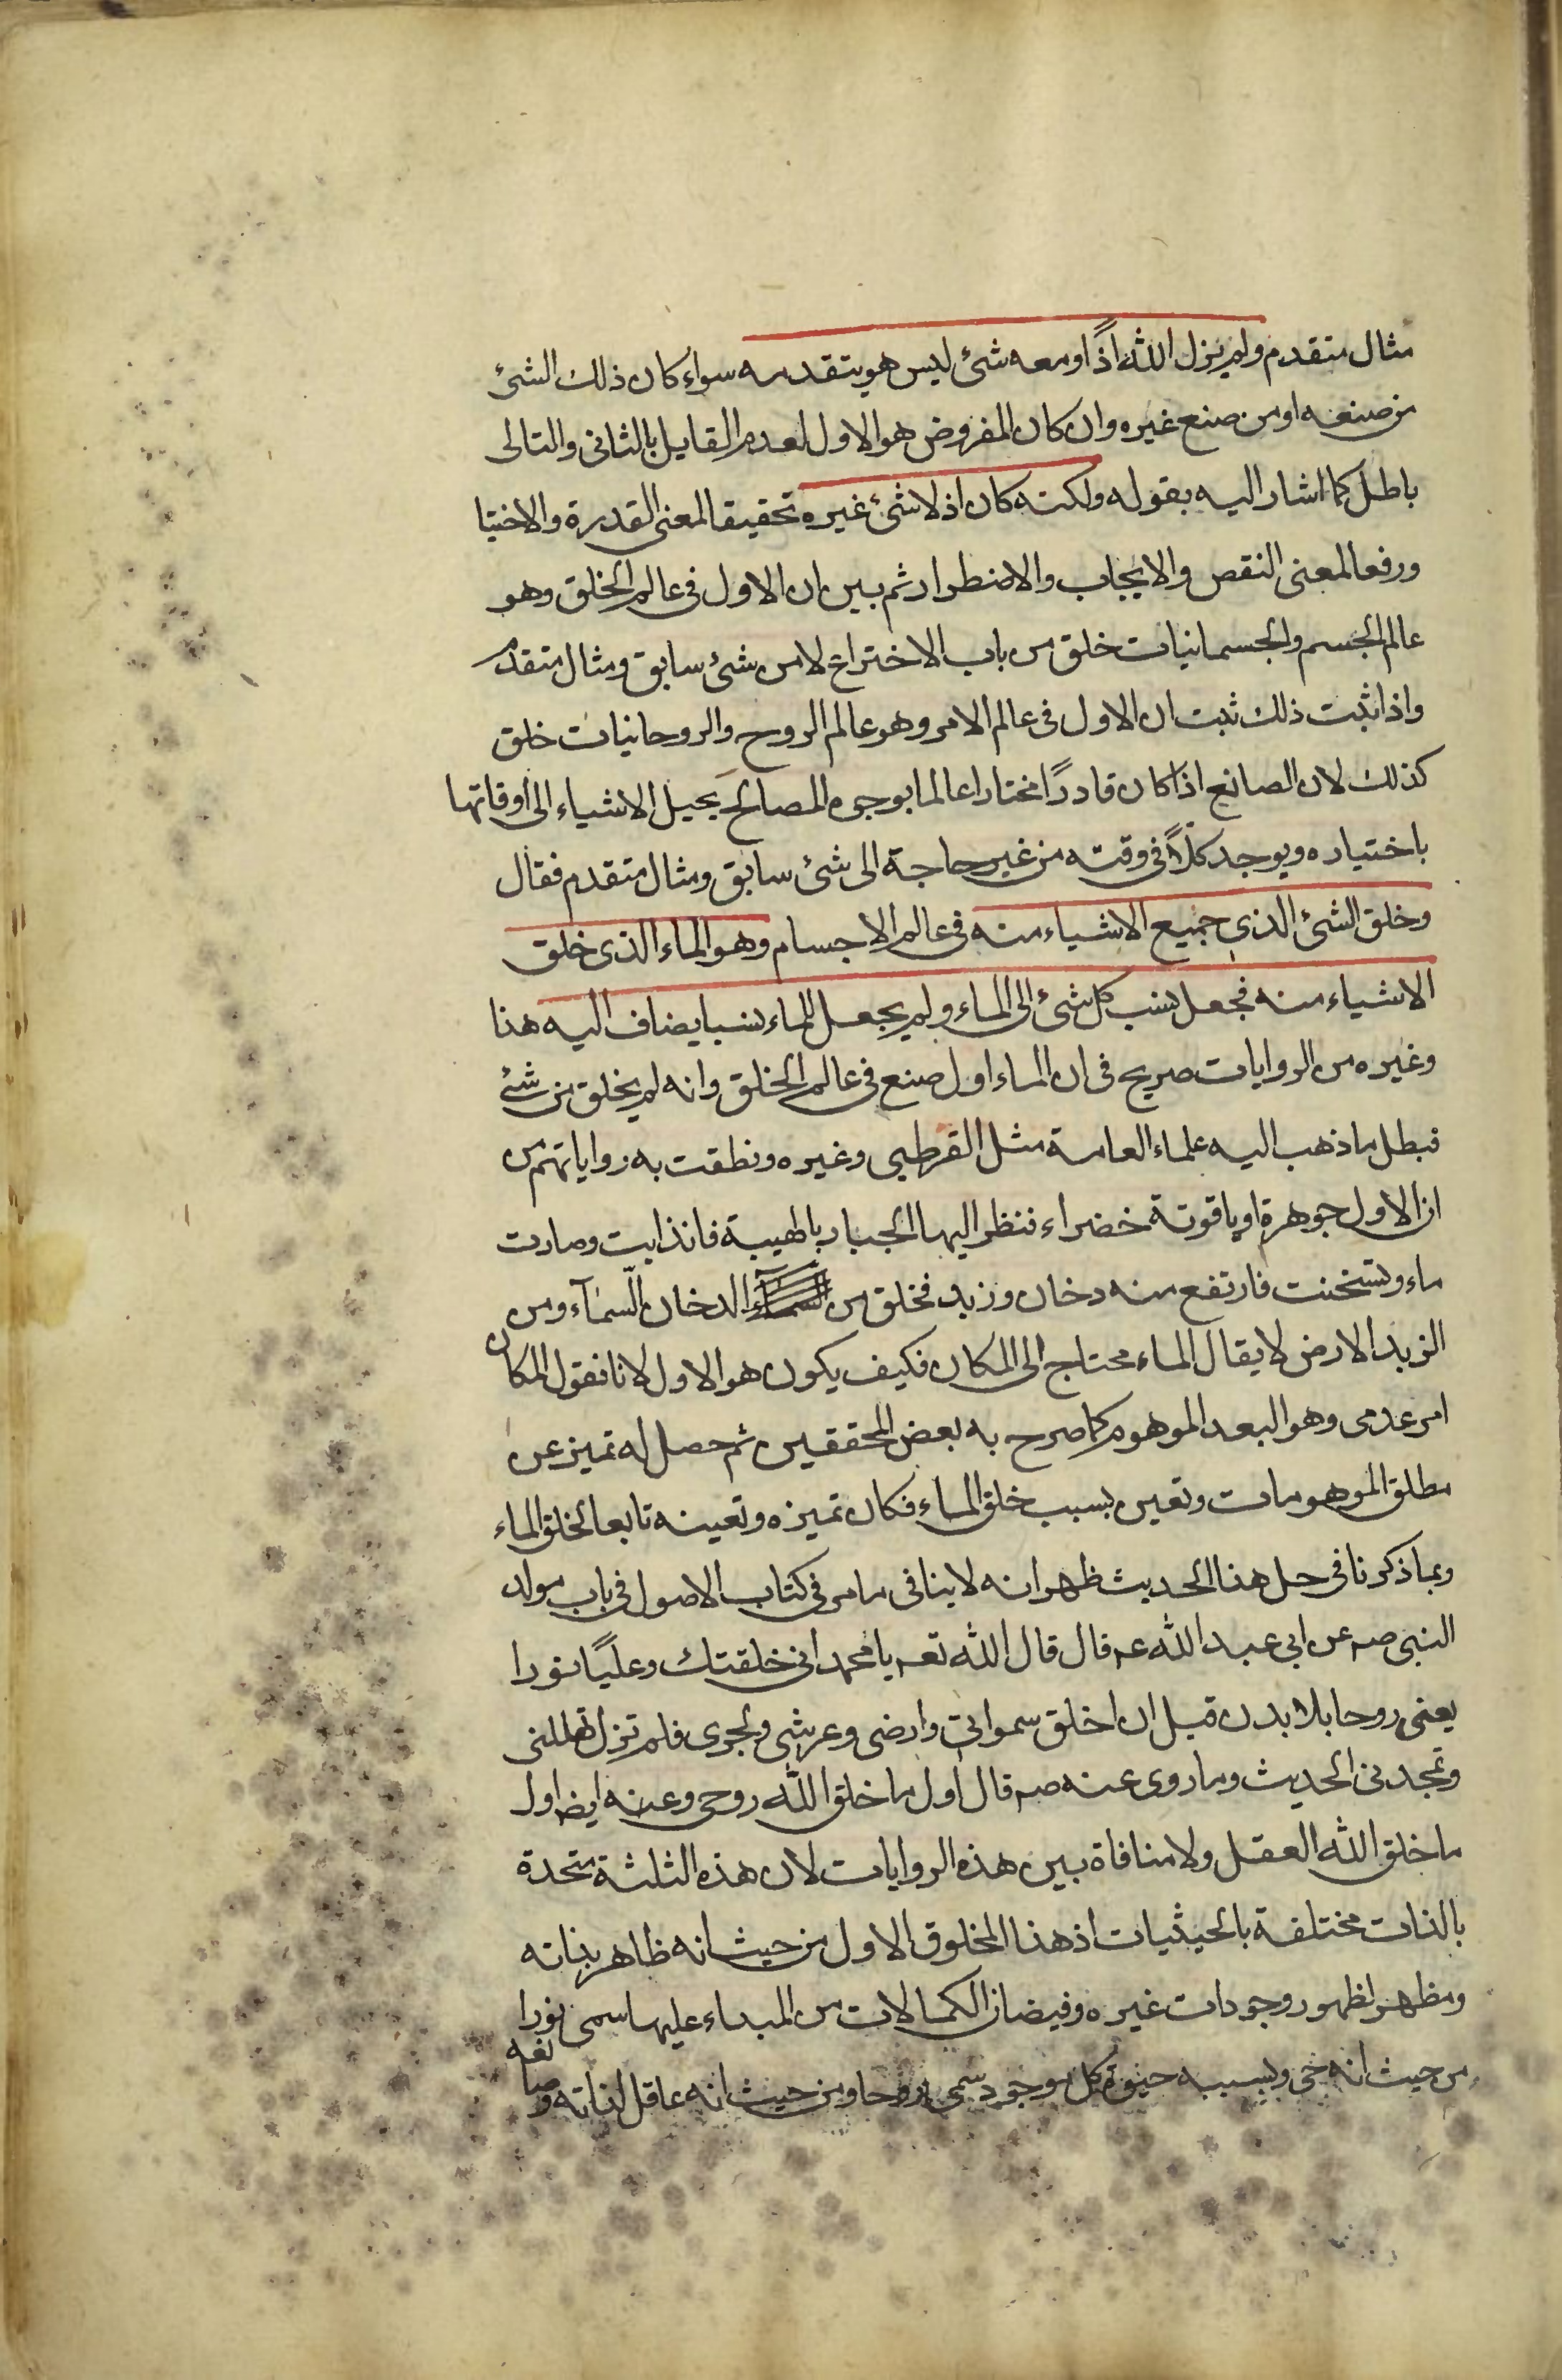 مثال متقدم ولم يزل الله اذًا ومعه شئ ليس هو يتقدمه سواء كان ذلك الشئ
من صنعه او من صنع غيره وان كان المفروض هو الاول لعدم القايل بالثانى والتالى
باطل كما اشار اليه بقوله ولكنه كان اذ لا شئ غيره تحقيقا لمعنى القدرة والاختيا
ورفعا لمعنى النقص والايجاب والاضطرار ثم بين ان الاول فى عالم الخلق وهو
عالم الجسم والجسمانيات خلق من باب الاختراع لا من شئ سابق ومثال متقدم
واذا ثبت ذلك ثبت ان الاول فى عالم الامر وهو عالم الروح والروحانيات خلق
كذلك لان الصانع اذا كان قادرًا مختارا عالما بوجوه المصالح يحيل الاشياء الى اوقاتها
باختياره ويوجد كلاً فى وقته من غير حاجة الى شئ سابق ومثال متقدم فقال
وخلق الشئ الذى جميع الاشياء منه فى عالم الاجسام وهو الماء الذى خلق
الاشياء منه فجعل نسب كل شئ الى الماء ولم يجعل للماء نسبا يضاف اليه هذا
وغيره من الروايات صريح فى ان الماء اول صنع فى عالم الخلق وانه لم يخلق من شئ
فبطل ما ذهب اليه علماء العامة مثل القرطبى وغيره ونطقت به رواياتهم من
ان الاول جوهرة او ياقوتة خضراء فنظر اليها الجبار بالهيبة فانذابت وصارت
ماء وتسخنت فارتفع منه دخان وزبد فخلق من الدخان السّمآء ومن
الزبد الارض لا يقال الماء محتاج الى المكان فكيف يكون هو الاول لانا نقول المكان
امر عدمى وهو البعد الموهوم كما صرح به بعض المحققين ثم حصل له تميز عن
مطلق الموهومات وتعين بسبب خلق الماء فكان تميزه وتعينه تابعا لخلق الماء
وبما ذكرنا فى حل هذا الحديث ظهر انه لا ينافى ما مر فى كتاب الاصول فى باب مولد
النبى صه عن ابى عبد الله عه قال قال الله تعه يا محمد انى خلقتك وعليًا نورا
يعنى روحا بلا بدن قبل ان اخلق سمواتى وارضى وعرشى وبحرى فلم تزل تهللنى
وتمجدنى الحديث وما روى عنه صه قال اول ما خلق الله روحى وعنه ايضا اول
ما خلق الله العقل ولا منافاة بين هذه الروايات لان هذه الثلثة متحدة
بالذات مختلفة بالحيثيات اذ هذا المخلوق الاول من حيث انه ظاهر بذاته
ومظهر لظهور وجودات غيره وفيضان الكمالات من المبداء عليها سمى نورا
من حيث انه حى وبسببه حيوة كل موجود سمى روحا ومن حيث انه عاقل لذاته وصفاته